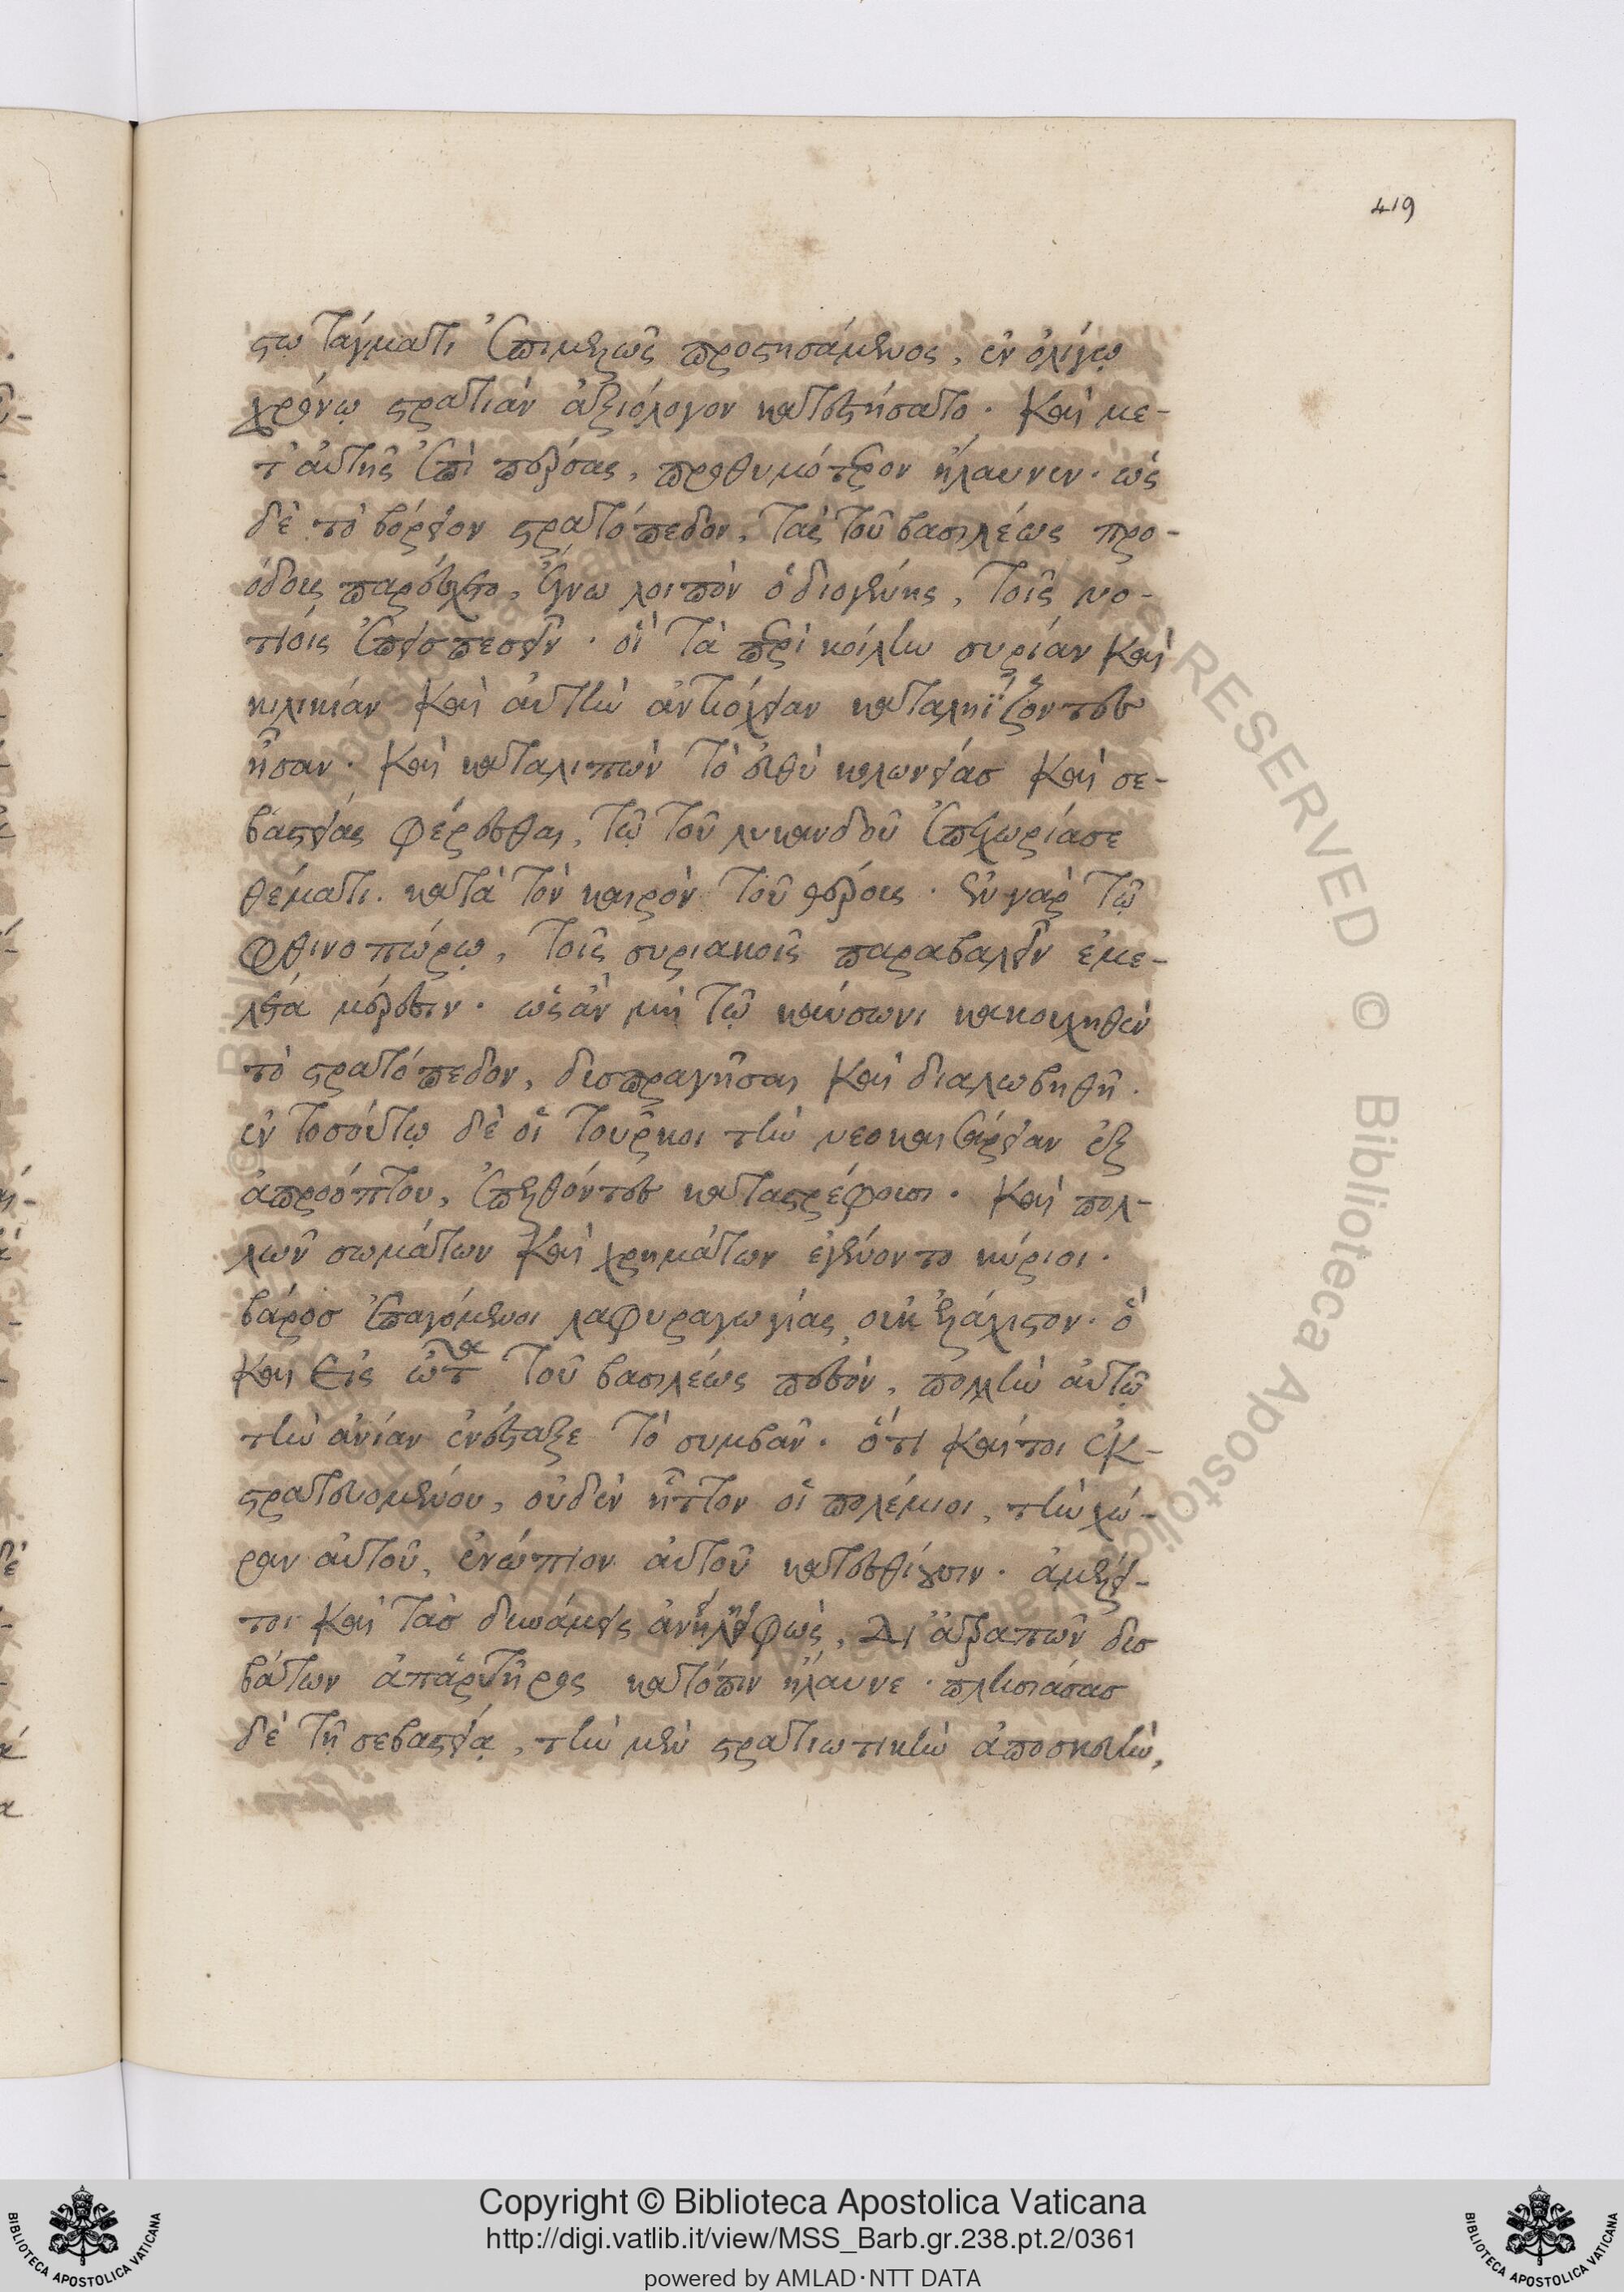 419
στω τάγματι ἐπιμελῶς προστησάμενος, ἐν ὀλίγω
χρόνω στρατιάν ἀξιόλογον κατεστήσατο. καὶ με-
τ' αὐτῆς ἐπὶ πέρσας, προθυμότερον ἤλαυνεν. ὡς
δὲ τὸ βόρειον στρατόπεδον, τὰς τοῦ βασιλέως προ-
όδους παρείλκετο, ἔγνω λοιπὸν ὁ διογένης, τοῖς νο-
τίοις ἐπεισπεσεῖν. οἳ τὰ περὶ κοίλην συρίαν καὶ
κιλικίαν καὶ αὐτὴν ἀντιόχειαν καταληΐζοντες
ἦσαν. καὶ καταλιπὼν τὸ εὐθὺ κολωνείας καὶ σε-
βαστείας φέρεσθαι, τῶ τοῦ λυκανδοῦ ἐπεχωρίασε
θέματι. κατὰ τὸν καιρὸν τοῦ θέρους. ἐν γὰρ τῶ
φθινοπώρω, τοῖς συριακοῖς παραβαλεῖν ἐμε-
λέτα μέρεσιν. ὡς ἂν μὴ τῶ καύσωνι κακουχηθὲν
τὸ στρατόπεδον, δυσπραγῆσαι καὶ διαλωβηθῆ.
ἐν τοσούτω δὲ οἱ τοῦρκοι τὴν νεοκαισάρειαν ἐξ
ἀπροόπτου, ἐπελθόντες καταστρέφουσι. καὶ πολ-
λῶν σωμάτων καὶ χρημάτων ἐγένοντο κύριοι.
βάρος ἐπαγόμενοι λαφυραγωγίας οὐκ ἐλάχιστον. ὃ
καὶ εἰς ὦτα τοῦ βασιλέως πεσὸν, πολλὴν αὐτῶ
τὴν ἀνίαν ἐνέσταξε τὸ συμβὰν. ὅτι καί τοι ἐκ-
στρατευομένου, οὐδὲν ἧττον οἱ πολέμιοι, τὴν χώ-
ραν αὐτοῦ, ἐνώπιον αὐτοῦ κατεσθίουσιν. ἀμέλει-
τοι καὶ τὰς δυνάμεις ἀνειληφὼς, δι' ἀτραπῶν δυσ
βάτων ἀπάρτι πρὸς κατόπιν ἤλαυνε. πλησιάσας
δὲ τῆ σεβαστεία, τὴν μὲν στρατιωτικὴν ἀποσκευὴν,
Copyright © Biblioteca Apostolica Vaticana
http://digi.vatlib.it/view/MSS_Barb.gr.238.pt.2/0361
powered by AMLAD·NTT DATA